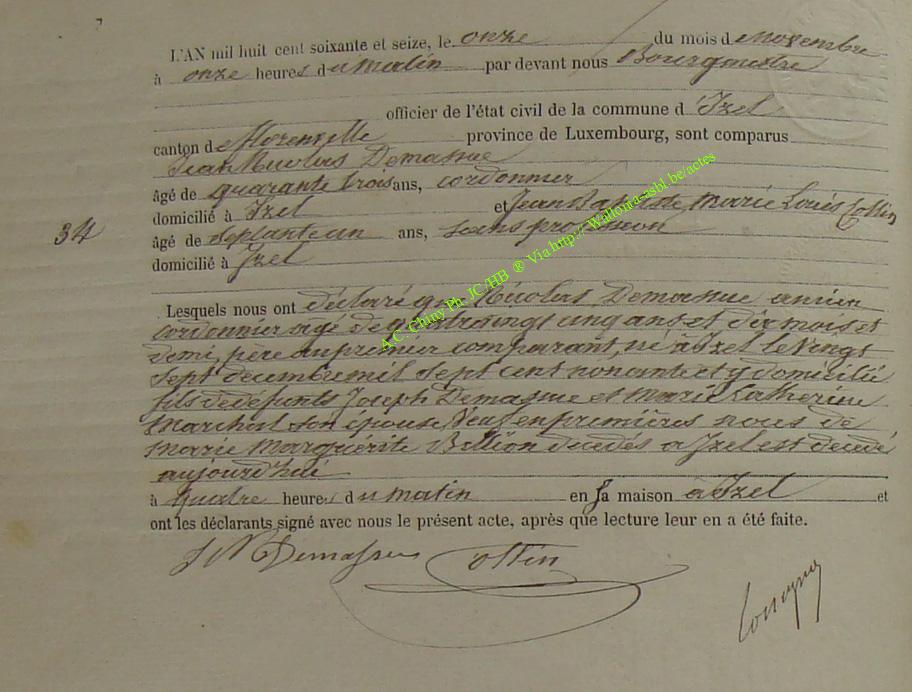 L'AN mil huit cent soixante et seize, le onze du mois de Novembre
à onze heures du Matin par devant nous Bourgmestre
officier de l'état civil de la commune d Izel
canton de florenville province de Luxembourg, sont comparus
Jean Nicolas Demasue
âgé de quarante trois ans, cordonnier
domicilié à Izel et Jean Baptiste Marie Louis Collin
34
âgé de septante un ans, sans profession
domicilié à Izel
Lesquels nous ont déclaré que Nicolas Demasue ancien
cordonnier agé de quatrevingt cinq ans et dix mois et
demi, père au premier comparant, né à Izel le Vingt
Sept decembre mil Sept Cent nonante et y domicilié
fils de defunts Joseph Demasue et Marie Catherine
Marchal son épouse, Veuf en premières noces de
Marie Marguérite Bellion decedés a Izel est decedé
aujourd'hui
à quatre heures du matin en sa maison à Izel et
ont les déclarants signé avec nous le présent acte, après que lecture leur en a été faite.
J N Demasue Collin
A.C. Chiny Ph. JC/HB ® Via http://Wallonia-asbl.be/actes